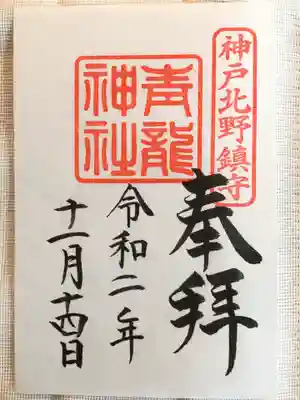 神戸北野鎮守
奉拝
青龍
神社
令和二年
十一月十四日